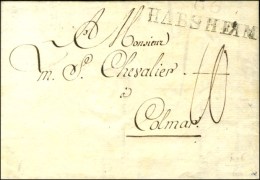 HABSHEIM
A Monsieur
m. S. Chevalier
à
Colmar